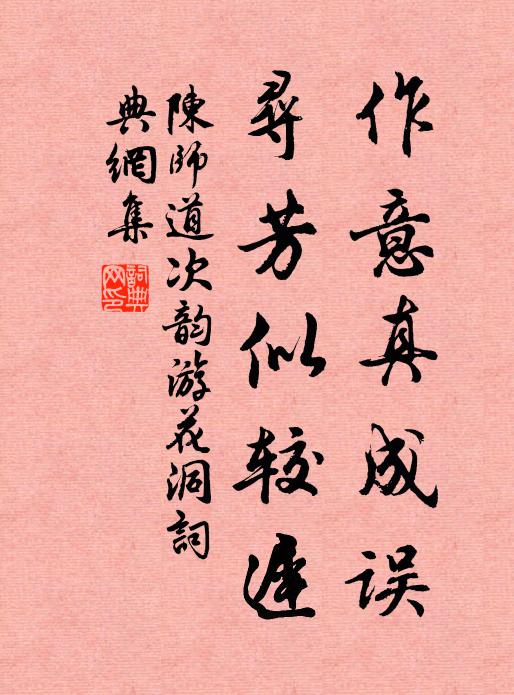 作意真成误
寻芳似较迟
陳師道次韵游花洞詞
典網集
詞典網印